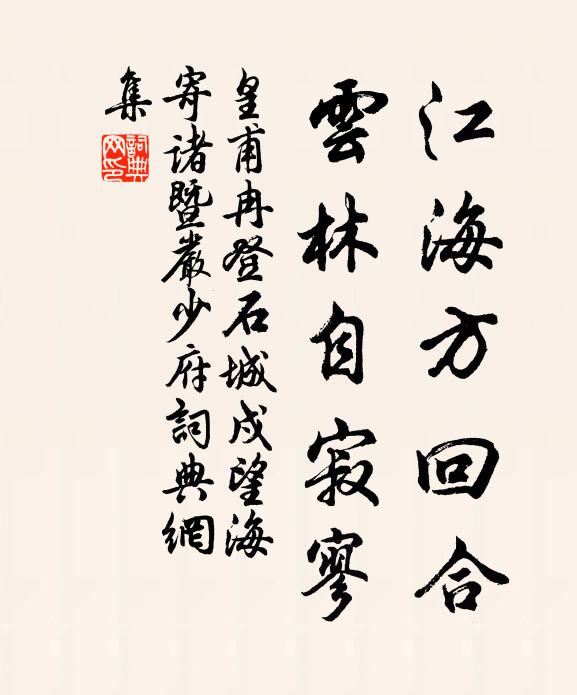 江海方回合
雲林自寂寥
皇甫冉登石城戍望海
寄諸暨嚴少府詞典網
集
詞典
网印